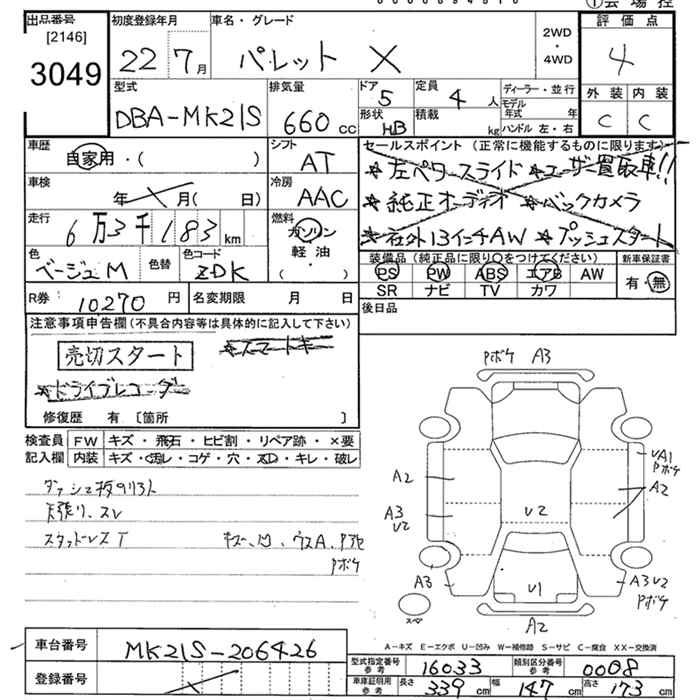 出品番号 初度登録年月 車名・グレード 2WD・4WD 評価点
[2146]
3049 22 7月 パレット X 4
型式 排気量 ドア 定員 ディーラー・並行 外装 内装
DBA-MK21S 660cc 5 4人 モデル年式 年 C C
形状 HB 積載 kg ハンドル 左・右
車歴 自家用・( ) シフト AT
セールスポイント (正常に機能するものに限ります)
☆左パワースライド ☆ユーザー買取車!!
☆純正オーディオ ☆バックカメラ
☆社外13インチAW ☆プッシュスタート
車検 年 月( 日) 冷房 AAC
走行 6万3千183km 燃料 ガソリン 軽油 ( )
色 ベージュM 色替 色コード ZDK
装備品 (純正品に限り○をつけてください) 新車保証書
PS PW ABS エアB AW 有・無
SR ナビ TV カワ
R券 10270円 名変期限 月 日 後日品
注意事項申告欄 (不具合内容等は具体的に記入して下さい)
売切スタート ☆スマートキー
☆ドライブレコーダー
修復歴 有 [箇所 ]
検査員 FW キズ・飛石・ヒビ割・リペア跡・×要
記入欄 内装 キズ・汚レ・コゲ・穴・スレ・キレ・破レ
天張り、スレ
スタッドレスT
Pボケ
Pボケ A3
VA1
Pボケ
A2 A2
A3 V2 V2
A3 V1 A3 V2
Pボケ
スペア A2
A-キズ E-エクボ U-凹み W-補修跡 S-サビ C-腐食 XX-交換済
車台番号 MK21S-206426
型式指定番号 参考 16033 類別区分番号 参考 0008
登録番号
車庫証明用 参考 長さ 339cm 幅 147cm 高さ 173cm